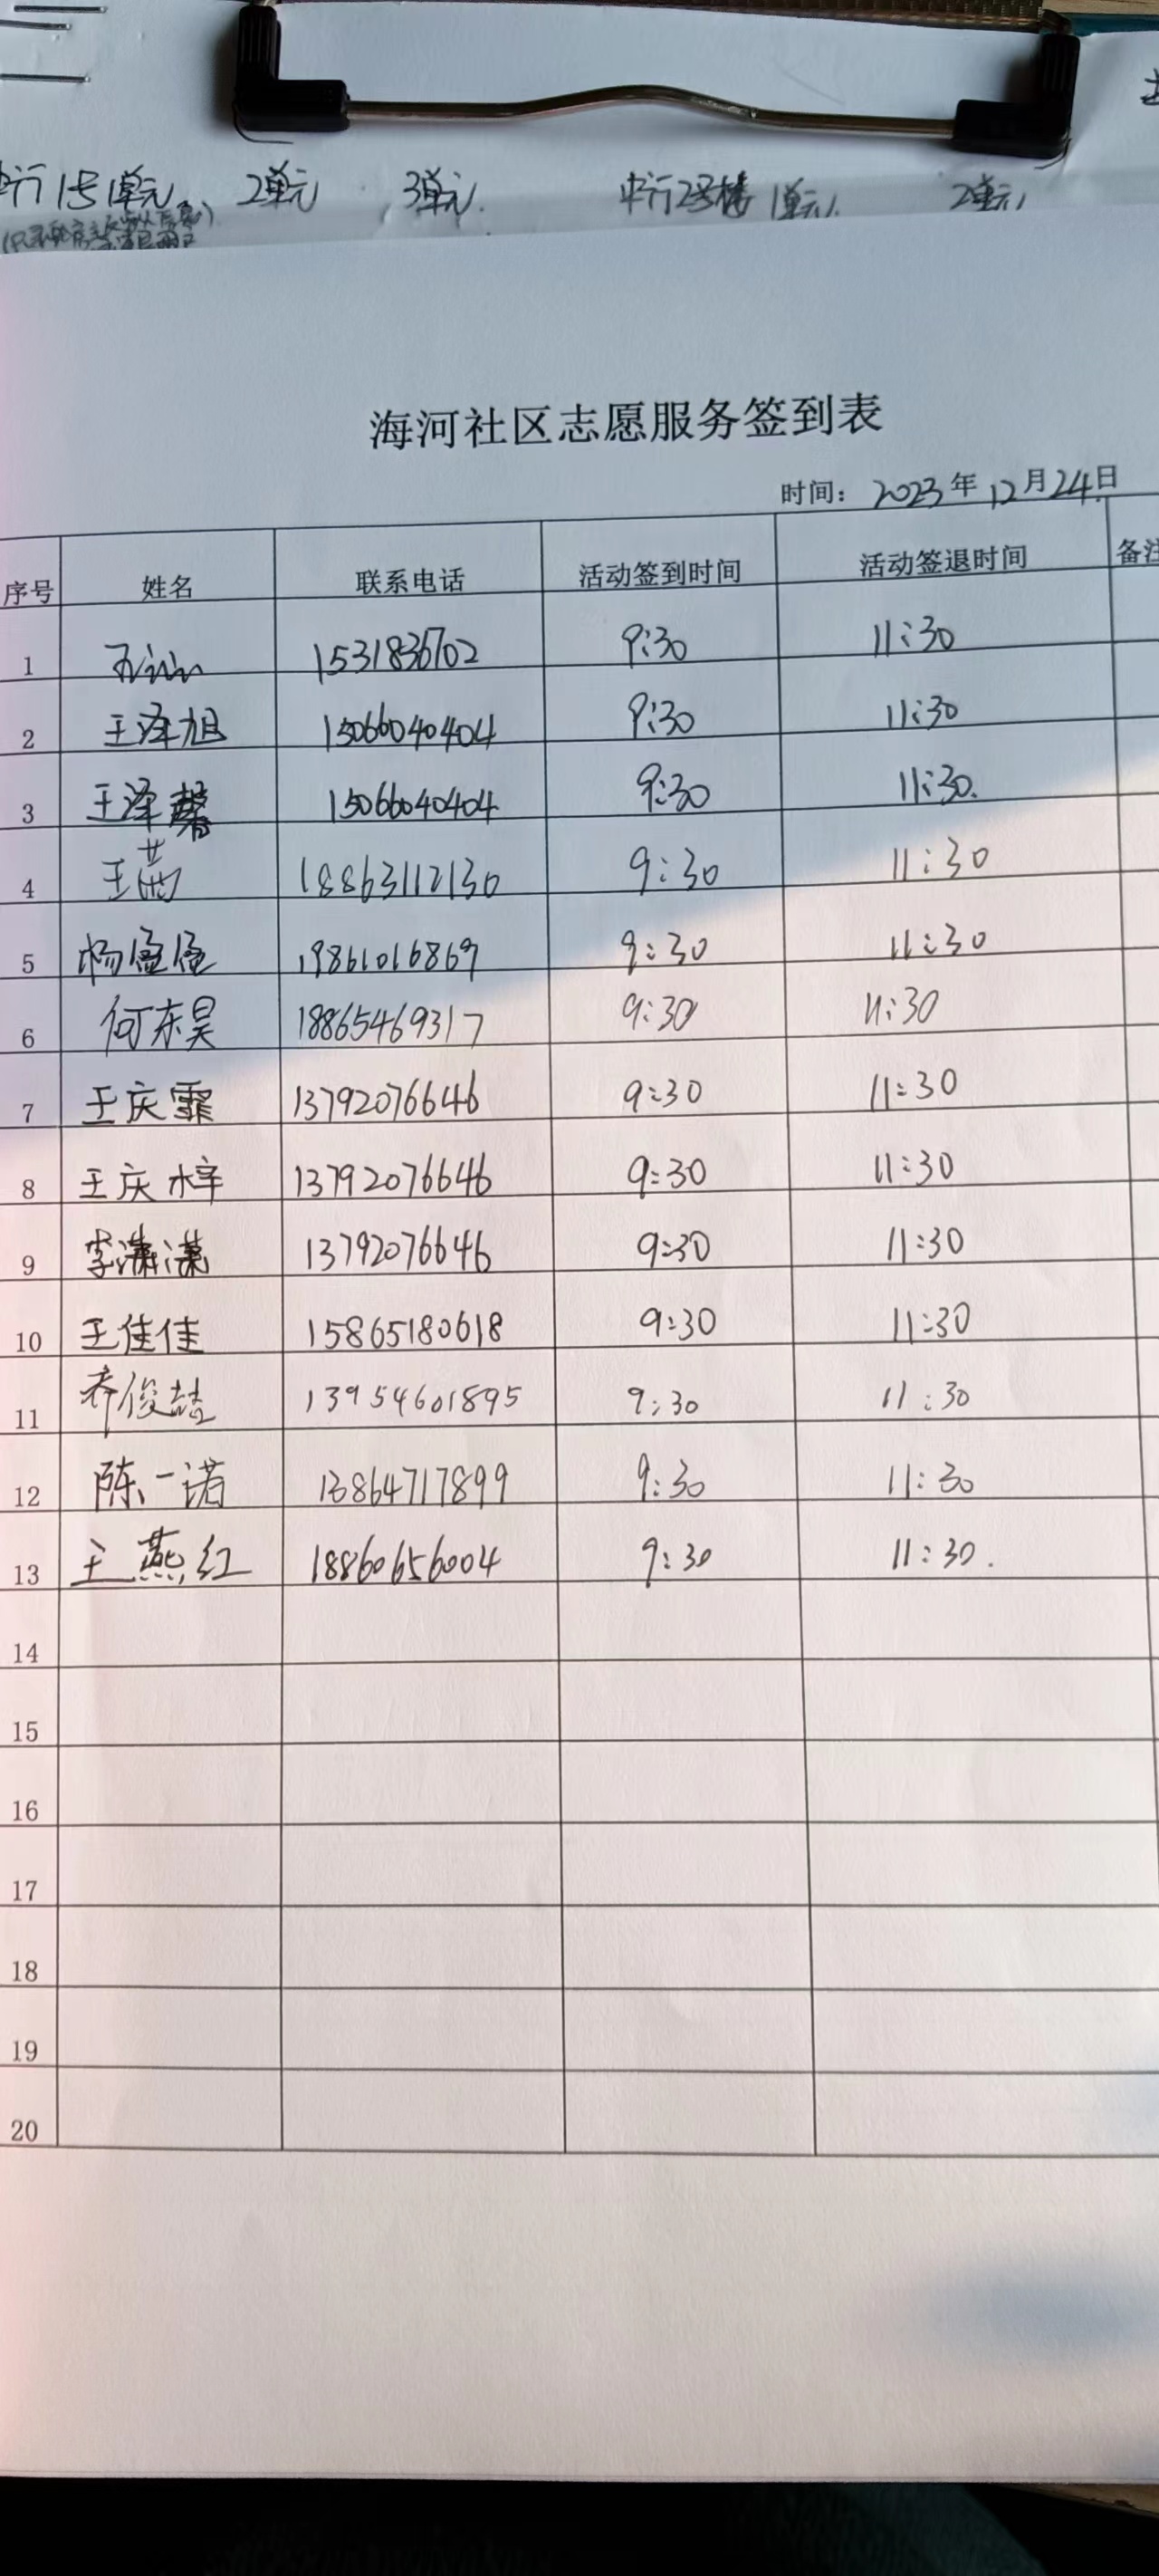 中行1号1单元、 2单元 3单元. 中行2号楼1单元, 2单元,
海河社区志愿服务签到表
时间: 2023年12月24日
序号 姓名 联系电话 活动签到时间 活动签退时间 备注
1 15318336702 9:30 11:30
2 王泽旭 15066040404 9:30 11:30
3 王泽馨 15066040404 9:30 11:30.
4 王茜 18863112130 9:30 11:30
5 杨 19861016869 9:30 11:30
6 何东昊 18865469317 9:30 11:30
7 王庆霏 13792076646 9:30 11:30
8 王庆梓 13792076646 9:30 11:30
9 李潇潇 13792076646 9:30 11:30
10 王佳佳 15865180618 9:30 11:30
11 乔俊喆 13954601895 9:30 11:30
12 陈一诺 13864717899 9:30 11:30
13 王燕红 18860656004 9:30 11:30.
14
15
16
17
18
19
20